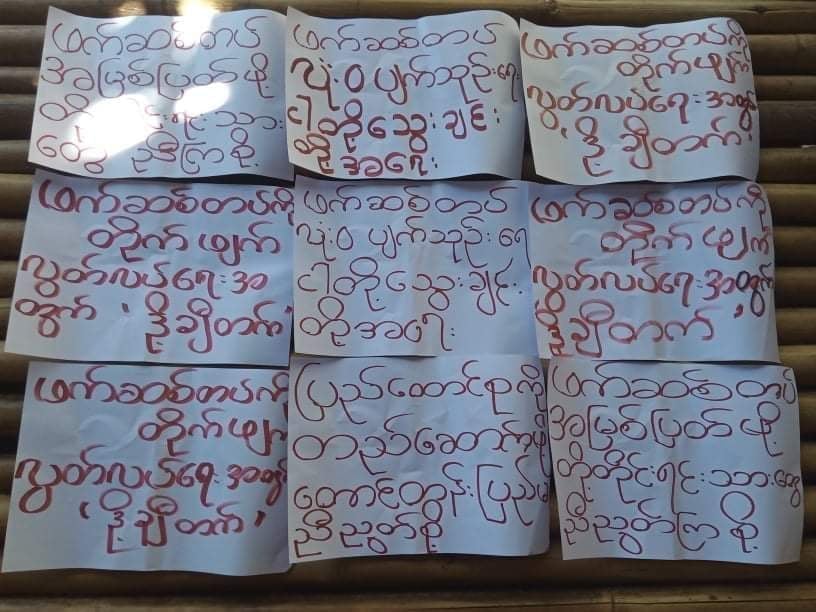 ဖက်ဆစ်တပ်
အမြစ်ပြတ်ဖို့
တို့ ရင်းသား
တွေ ညီကြစို့
ဖက်ဆစ်တပ်
လုံးဝ ပျက်သုဉ်းရေး
ငါတို့သွေးချင်း
တို့အရေး
ဖက်ဆစ်တပ်ကို
တိုက်ဖျက်
လွတ်လပ်ရေးအတွက်
'ဒို့ချီတက်'
ဖက်ဆစ်တပ်ကို
တိုက်ဖျက်
လွတ်လပ်ရေးအ
တွက် 'ဒို့ချီတက်'
ဖက်ဆစ်တပ်
လုံးဝ ပျက်သုဉ်းရေ
ငါတို့သွေးချင်း
တို့အရေး
ဖက်ဆစ်တပ်ကို
တိုက်ဖျက်
လွတ်လပ်ရေးအတွက်
'ဒို့ချီတက်'
ဖက်ဆစ်တပ်ကို
တိုက်ဖျက်
လွတ်လပ်ရေးအတွက်
'ဒို့ချီတက်'
ပြည်ထောင်စုကို
တည်ဆောက်ဖို့
တောင်တန်းပြည်မ
ညီညွတ်စို့
ဖက်ဆစ်တပ်
အမြစ်ပြတ်ဖို့
တို့တိုင်းရင်းသားတွေ
ညီညွတ်ကြစို့